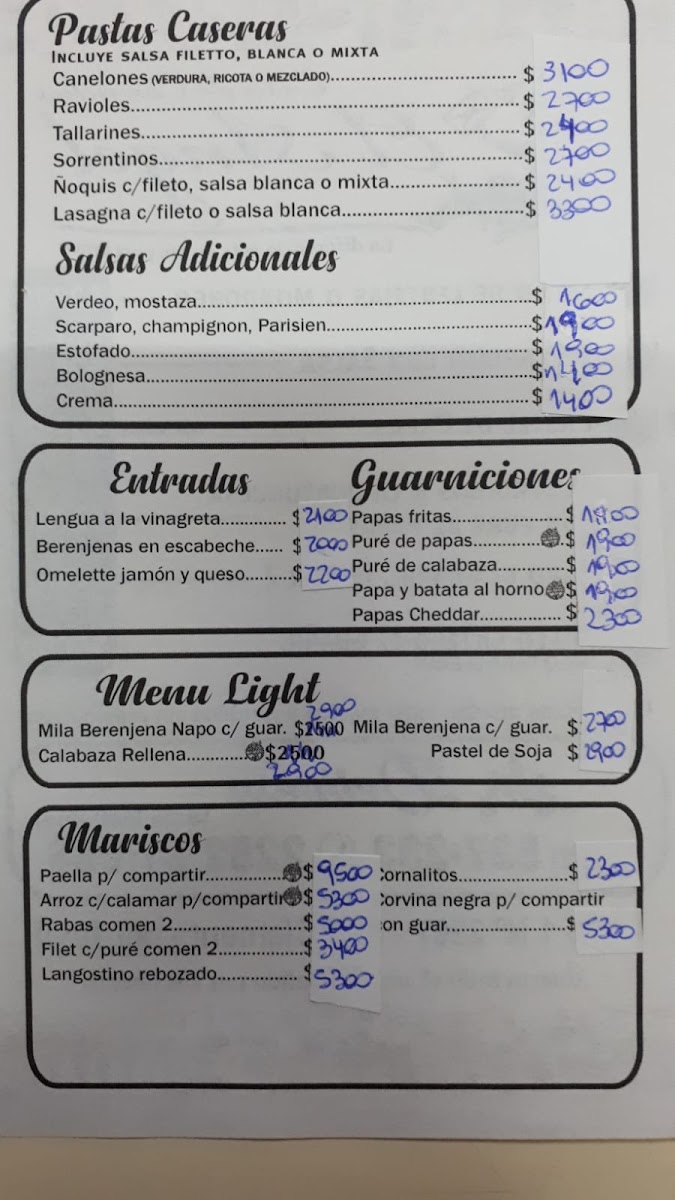 Pastas Caseras
INCLUYE SALSA FILETTO, BLANCA O MIXTA
Canelones (VERDURA, RICOTA O MEZCLADO)............ $ 3100
Ravioles............ $ 2700
Tallarines............ $ 2400
Sorrentinos............ $ 2700
Ñoquis c/fileto, salsa blanca o mixta............ $ 2400
Lasagna c/fileto o salsa blanca............ $ 3300
Salsas Adicionales
Verdeo, mostaza............ $ 1600
Scarparo, champignon, Parisien............ $ 1900
Estofado............ $ 1900
Bolognesa............ $ 1400
Crema............ $ 1400
Entradas
Lengua a la vinagreta............ $ 2100
Berenjenas en escabeche...... $ 2000
Omelette jamón y queso.......... $ 2200
Guarniciones
Papas fritas............ $
Puré de papas............ $ 1900
Puré de calabaza............ $
Papa y batata al horno $ 1900
Papas Cheddar............ $ 2300
Menu Light
Mila Berenjena Napo c/ guar. $2500 2900
Calabaza Rellena............ $2500 2900
Mila Berenjena c/ guar. $ 2700
Pastel de Soja $ 2900
Mariscos
Paella p/ compartir............ $ 9500
Arroz c/calamar p/compartir $ 5300
Rabas comen 2............ $ 5000
Filet c/puré comen 2............ $ 3400
Langostino rebozado............ $ 5300
Cornalitos............ $ 2300
Corvina negra p/ compartir
on guar............ $ 5300